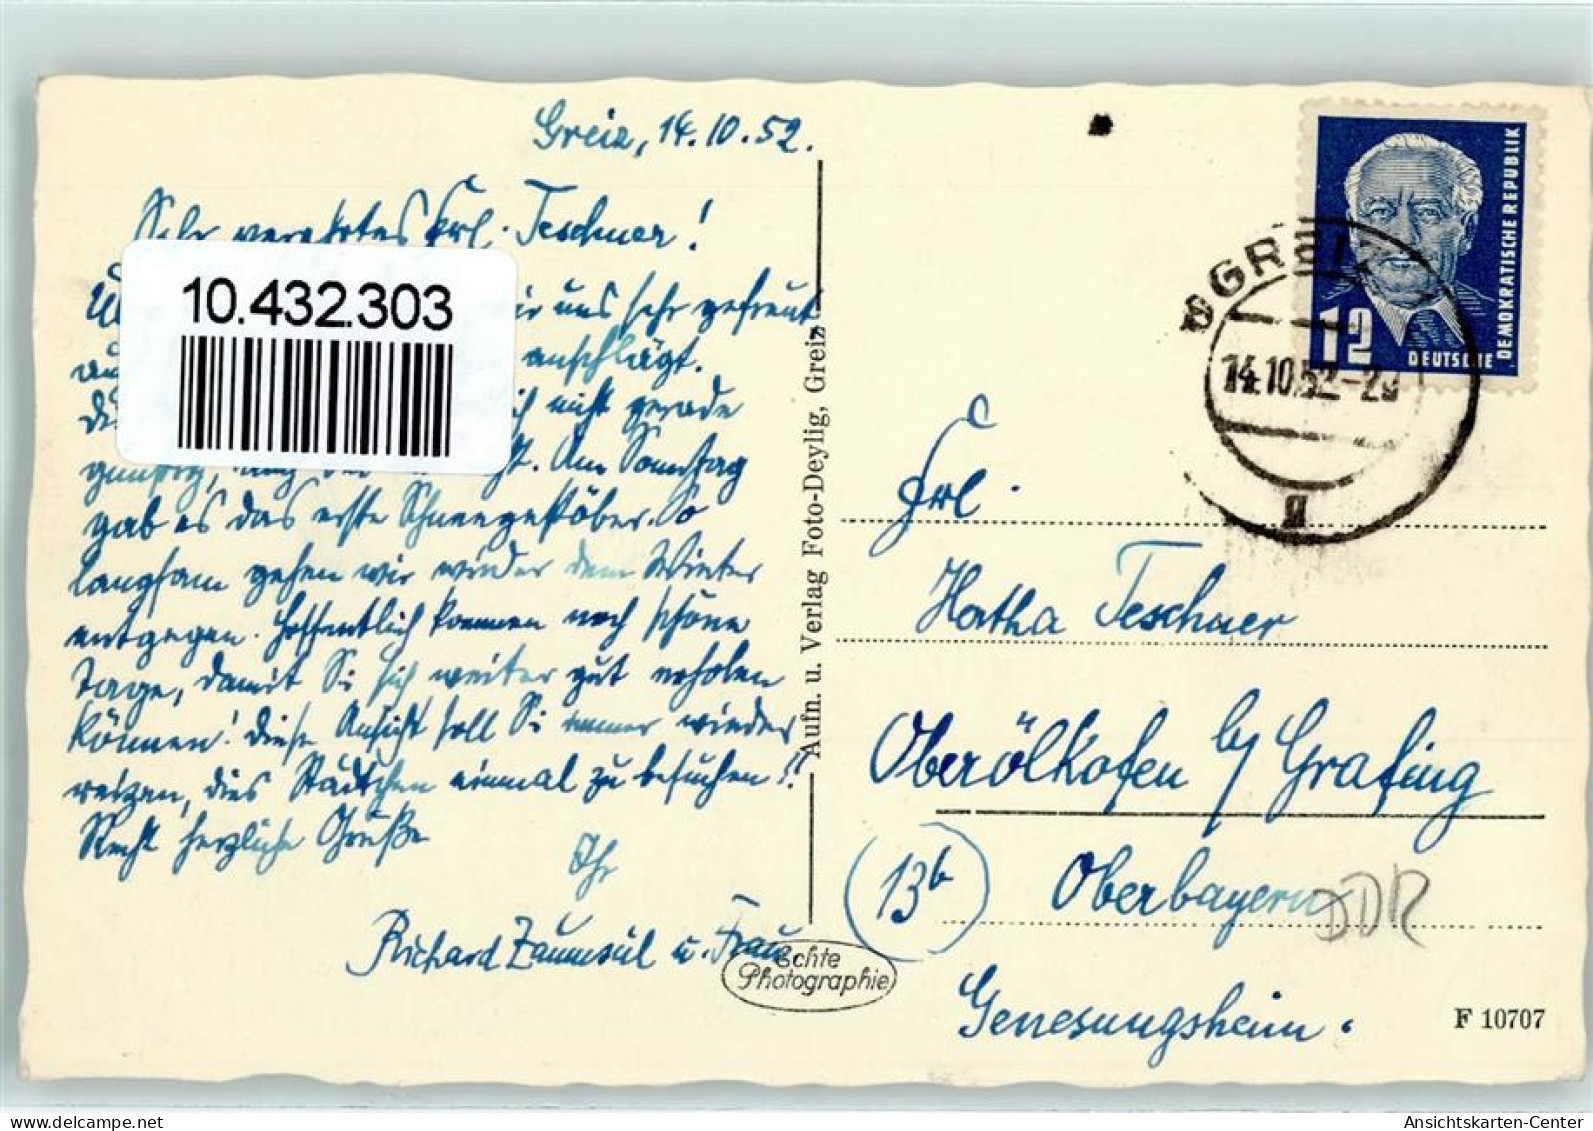 Greiz, 14.10.52.
Sehr verehrtes Frl. Teschner!
10.432.303
wir uns sehr gefreut
anschlägt.
nicht gerade
günstig, Am Sonntag
gab es das erste Schneegestöber. So
langsam gehen wir wieder dem Winter
entgegen. Hoffentlich kommen noch schöne
Tage, damit Sie sich weiter gut erholen
können! Diese Ansicht soll Sie immer wieder
reizen, dies Städtchen einmal zu besuchen!!
Recht herzliche Grüße
Ihr
Richard Zaumseil u. Frau.
Aufn. u. Verlag Foto-Deylig, Greiz
Echte
Photographie
DEUTSCHE DEMOKRATISCHE REPUBLIK
12
GREIZ
14.10.52-20
Frl.
Hertha Teschner
Oberölkofen b/ Grafing
13b Oberbayern
DDR
Genesungsheim.
F 10707
Ansichtskarten-Center